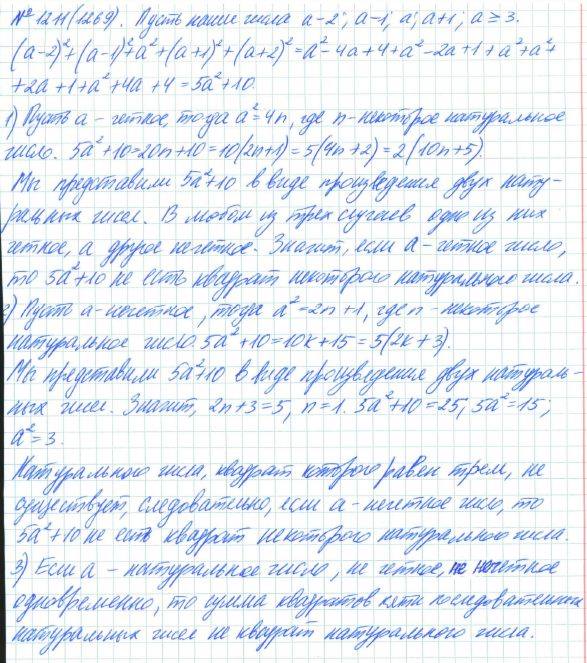 № 1211(1269). Пусть наши числа a-2; a-1; a; a+1; a ≥ 3.
(a-2)²+(a-1)²+a²+(a+1)²+(a+2)²=a²-4a+4+a²-2a+1+a²+a²+
+2a+1+a²+4a+4=5a²+10.
1) Пусть a - четное, тогда a²=4n, где n-некоторое натуральное
число. 5a²+10=20n+10=10(2n+1)=5(4n+2)=2(10n+5).
Мы представили 5a²+10 в виде произведения двух нату-
ральных чисел. В любом из трех случаев одно из них
четное, а другое нечетное. Значит, если a-четное число,
то 5a²+10 не есть квадрат некоторого натурального числа.
2) Пусть a-нечетное, тогда a²=2n+1, где n-некоторое
натуральное число. 5a²+10=10k+15=5(2k+3).
Мы представили 5a²+10 в виде произведения двух натураль-
ных чисел. Значит, 2n+3=5, n=1. 5a²+10=25, 5a²=15;
a²=3.
Натурального числа, квадрат которого равен трем, не
существует, следовательно, если a-нечетное число, то
5a²+10 не есть квадрат некоторого натурального числа.
3) Если a - натуральное число, не четное, не нечетное
одновременно, то сумма квадратов пяти последовательных
натуральных чисел не квадрат натурального числа.